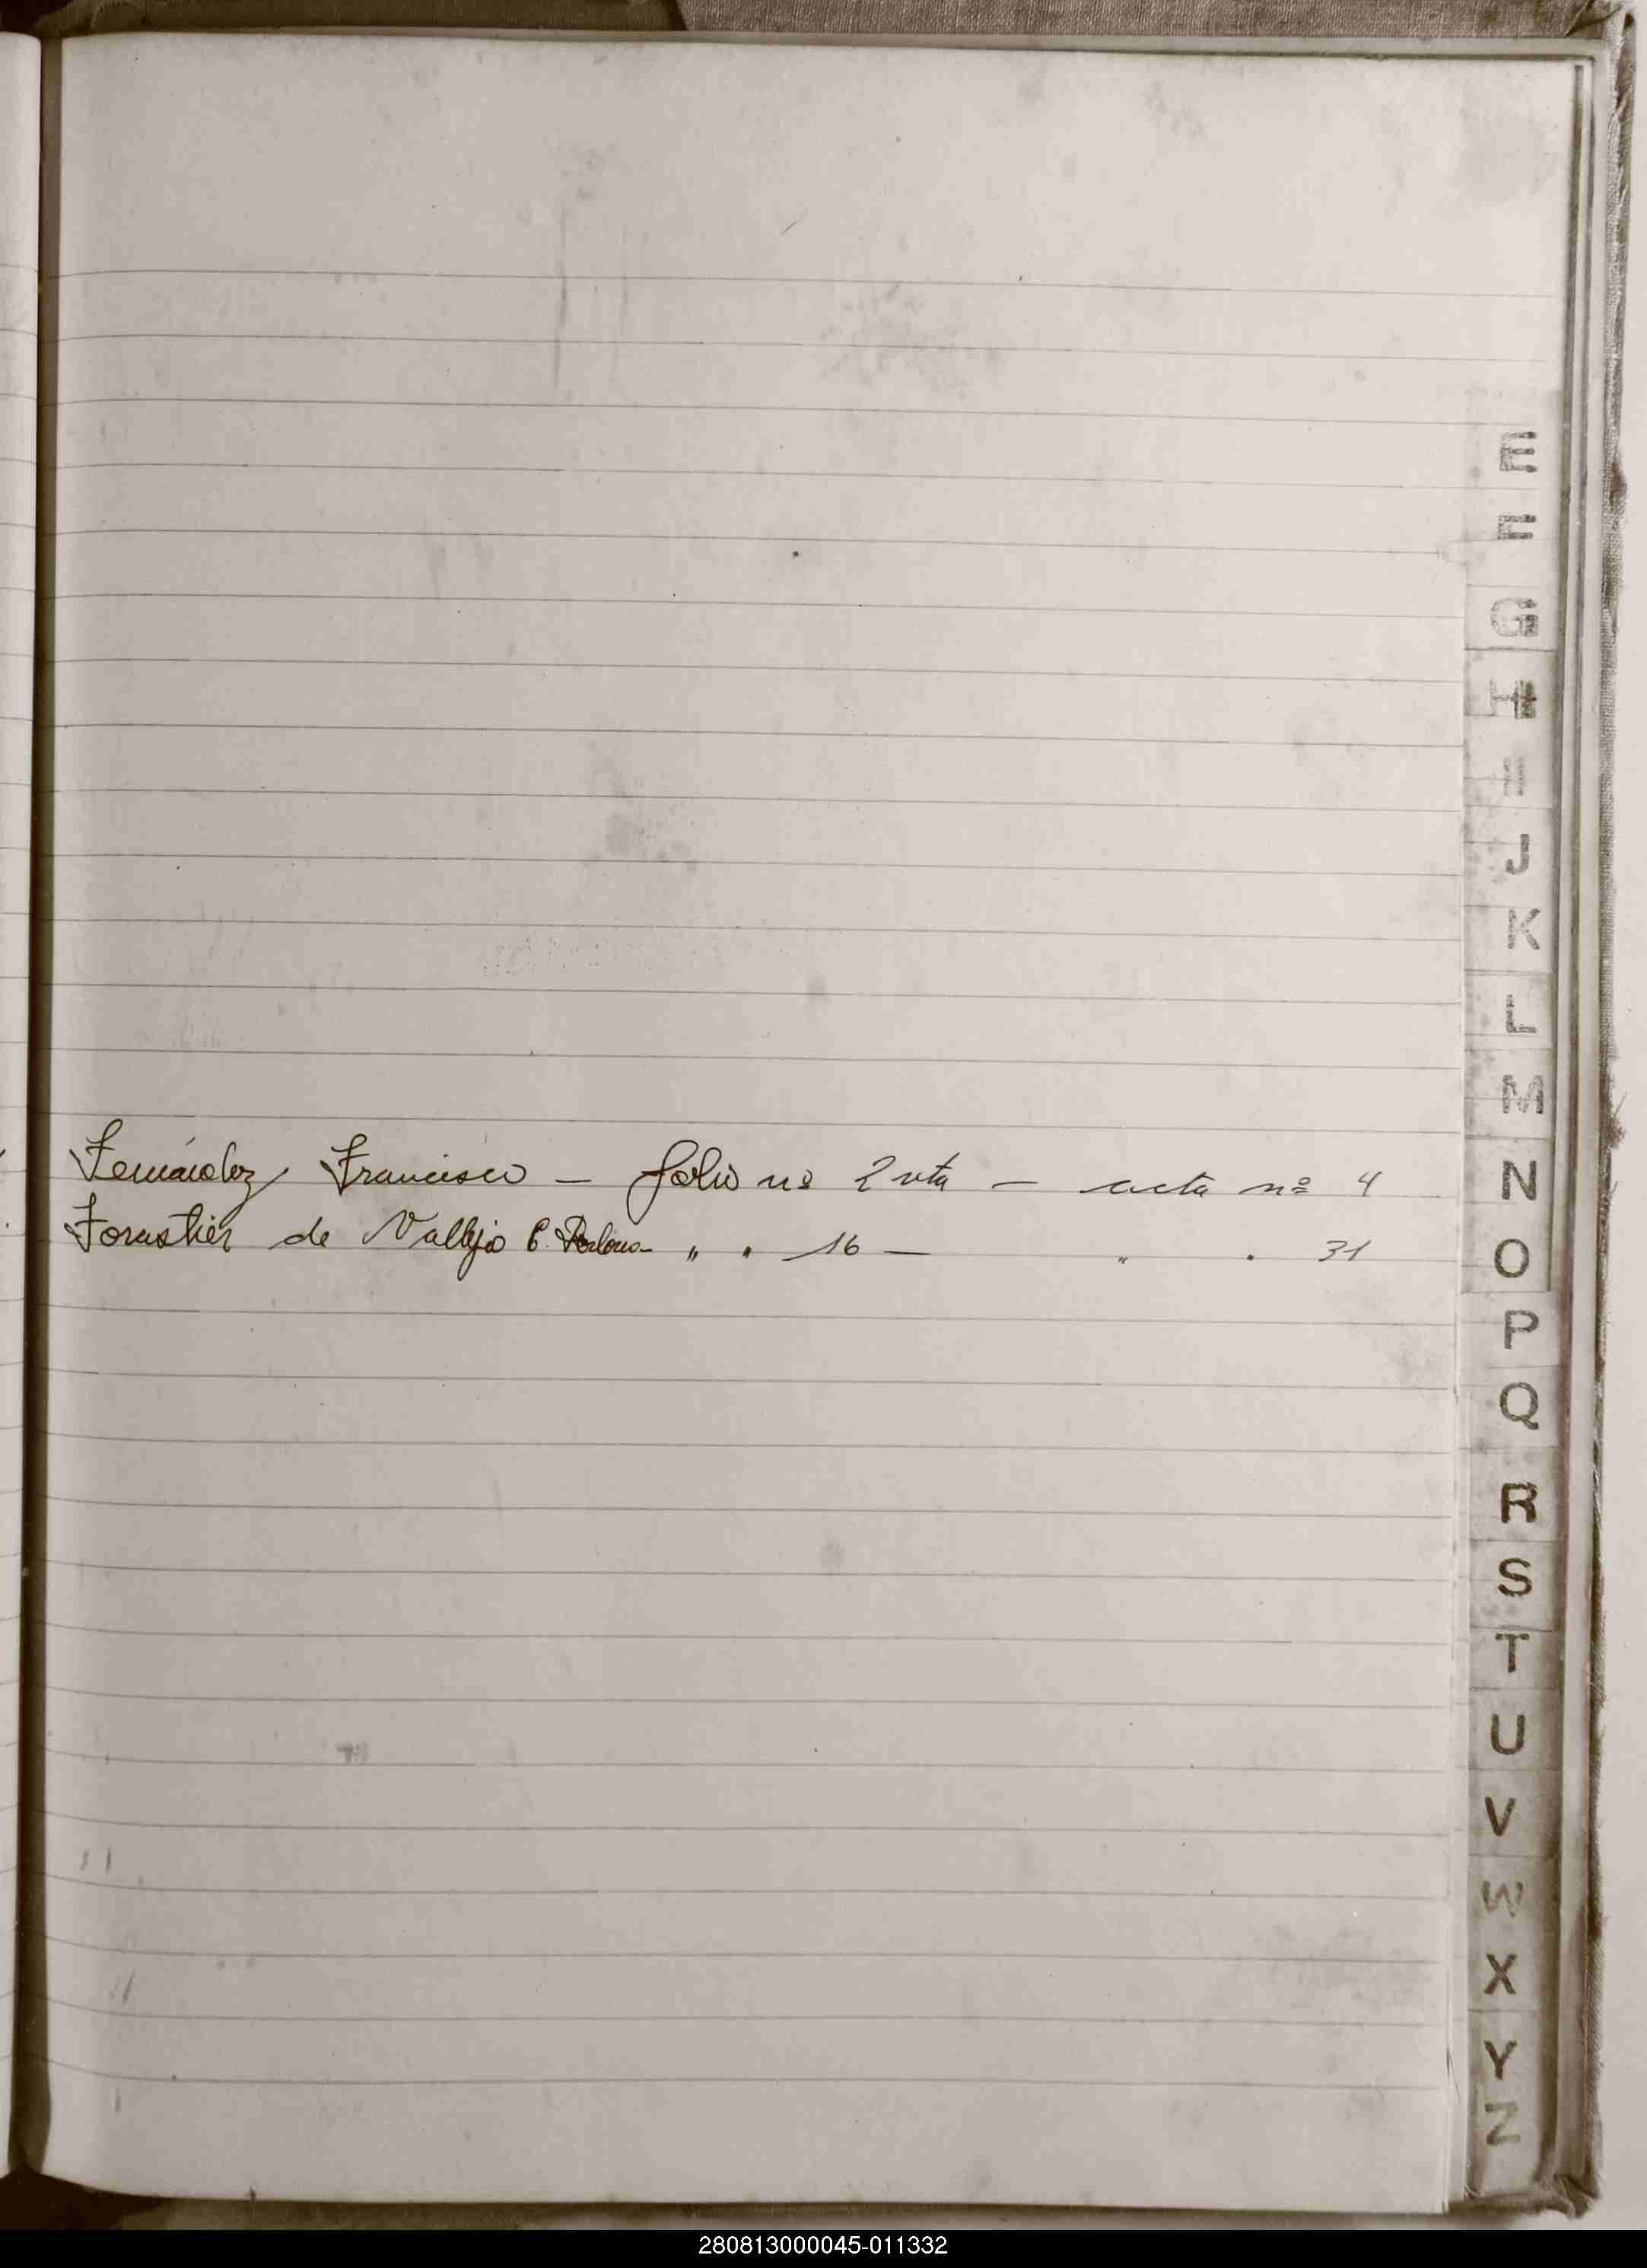 E
F
G
H
I
J
K
L
M
Fernández, Francisco — folio nº 2 vta — acta nº 4
N
Forastier de Vallejo C. " " 16 — " " 31
O
P
Q
R
S
T
U
V
W
X
Y
Z
280813000045-011332